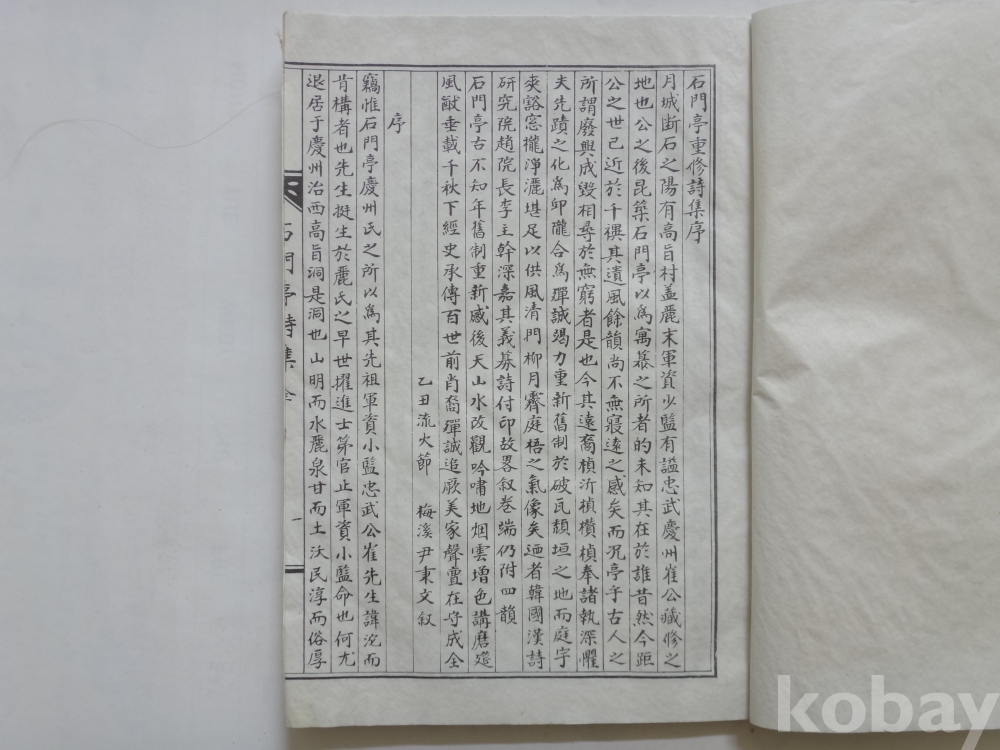 石門亭重修詩集序
月城斷石之陽有高旨村盖麗末軍資少監有謚忠武慶州崔公藏修之
地也公之後昆築石門亭以爲寓慕之所者的未知其在於誰昔然今距
公之世已近於千禩其遺風餘韻尚不無寢遠之感矣而況亭乎古人之
所謂廢興成毀相尋於無窮者是也今其遠裔楨沂楨欑楨奉諸執深懼
夫先蹟之化爲卬隴合爲殫誠竭力重新舊制於破瓦頹垣之地而庭宇
爽豁窓櫳淨灑堪足以供風清門柳月霽庭梧之氣像矣迺者韓國漢詩
研究院趙院長李主幹深嘉其義募詩付印故畧叙卷端仍附四韻
石門亭古不知年舊制重新感後天山水改觀吟嘯地烟雲增色講磨筵
風猷垂載千秋下經史承傳百世前肖裔殫誠追厥美家聲亶在守成全
乙丑流火節 梅溪尹秉文叙
序
竊惟石門亭慶州氏之所以爲其先祖軍資小監忠武公崔先生諱沇而
肯構者也先生挺生於麗氏之早世擢進士第官止軍資小監命也何尤
退居于慶州治西高旨洞是洞也山明而水麗泉甘而土沃民淳而俗厚
石門亭詩集 全
一
kobay